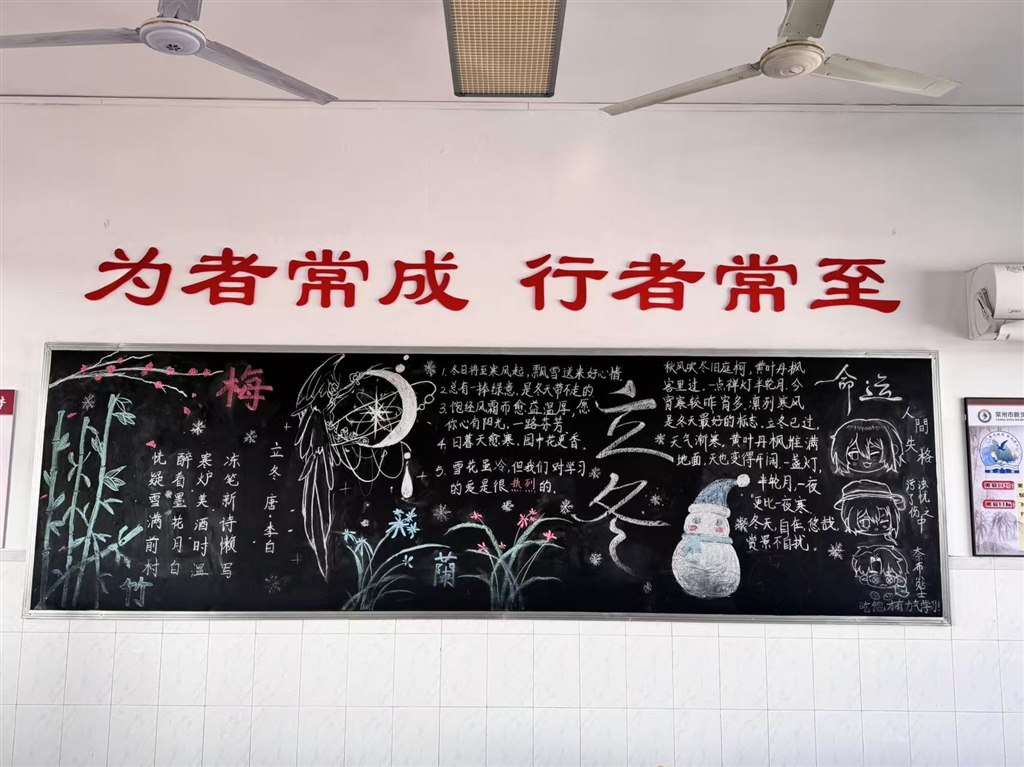 为者常成 行者常至
梅
立冬 唐·李白
冻笔新诗懒写
寒炉美酒时温
醉看墨花月白
恍疑雪满前村
竹
蘭
1. 冬日将至寒风起，飘雪送来好心情
2. 总有一棒绿意，是冬天带不走的
3. 饱经风霜而愈益温厚，愿
你心有阳光，一路芬芳
4. 日暮天愈寒，园中花更香。
5. 雪花虽冷，但我们对学习
的爱是很热烈的。
立冬
秋风吹冬旧庭柯，黄叶丹枫
客里过，一点禅灯半轮月，今
宵寒较昨宵多，凛列寒风
是冬天最好的标志，立冬已过，
天气渐寒，黄叶丹枫堆满
地面，天也变得
一盏灯，
半轮月，一夜
更比一夜寒
冬天自在，悠哉
赏景不自扰。
命运
人間失格
吃饱，才有力气学习！
常州市新